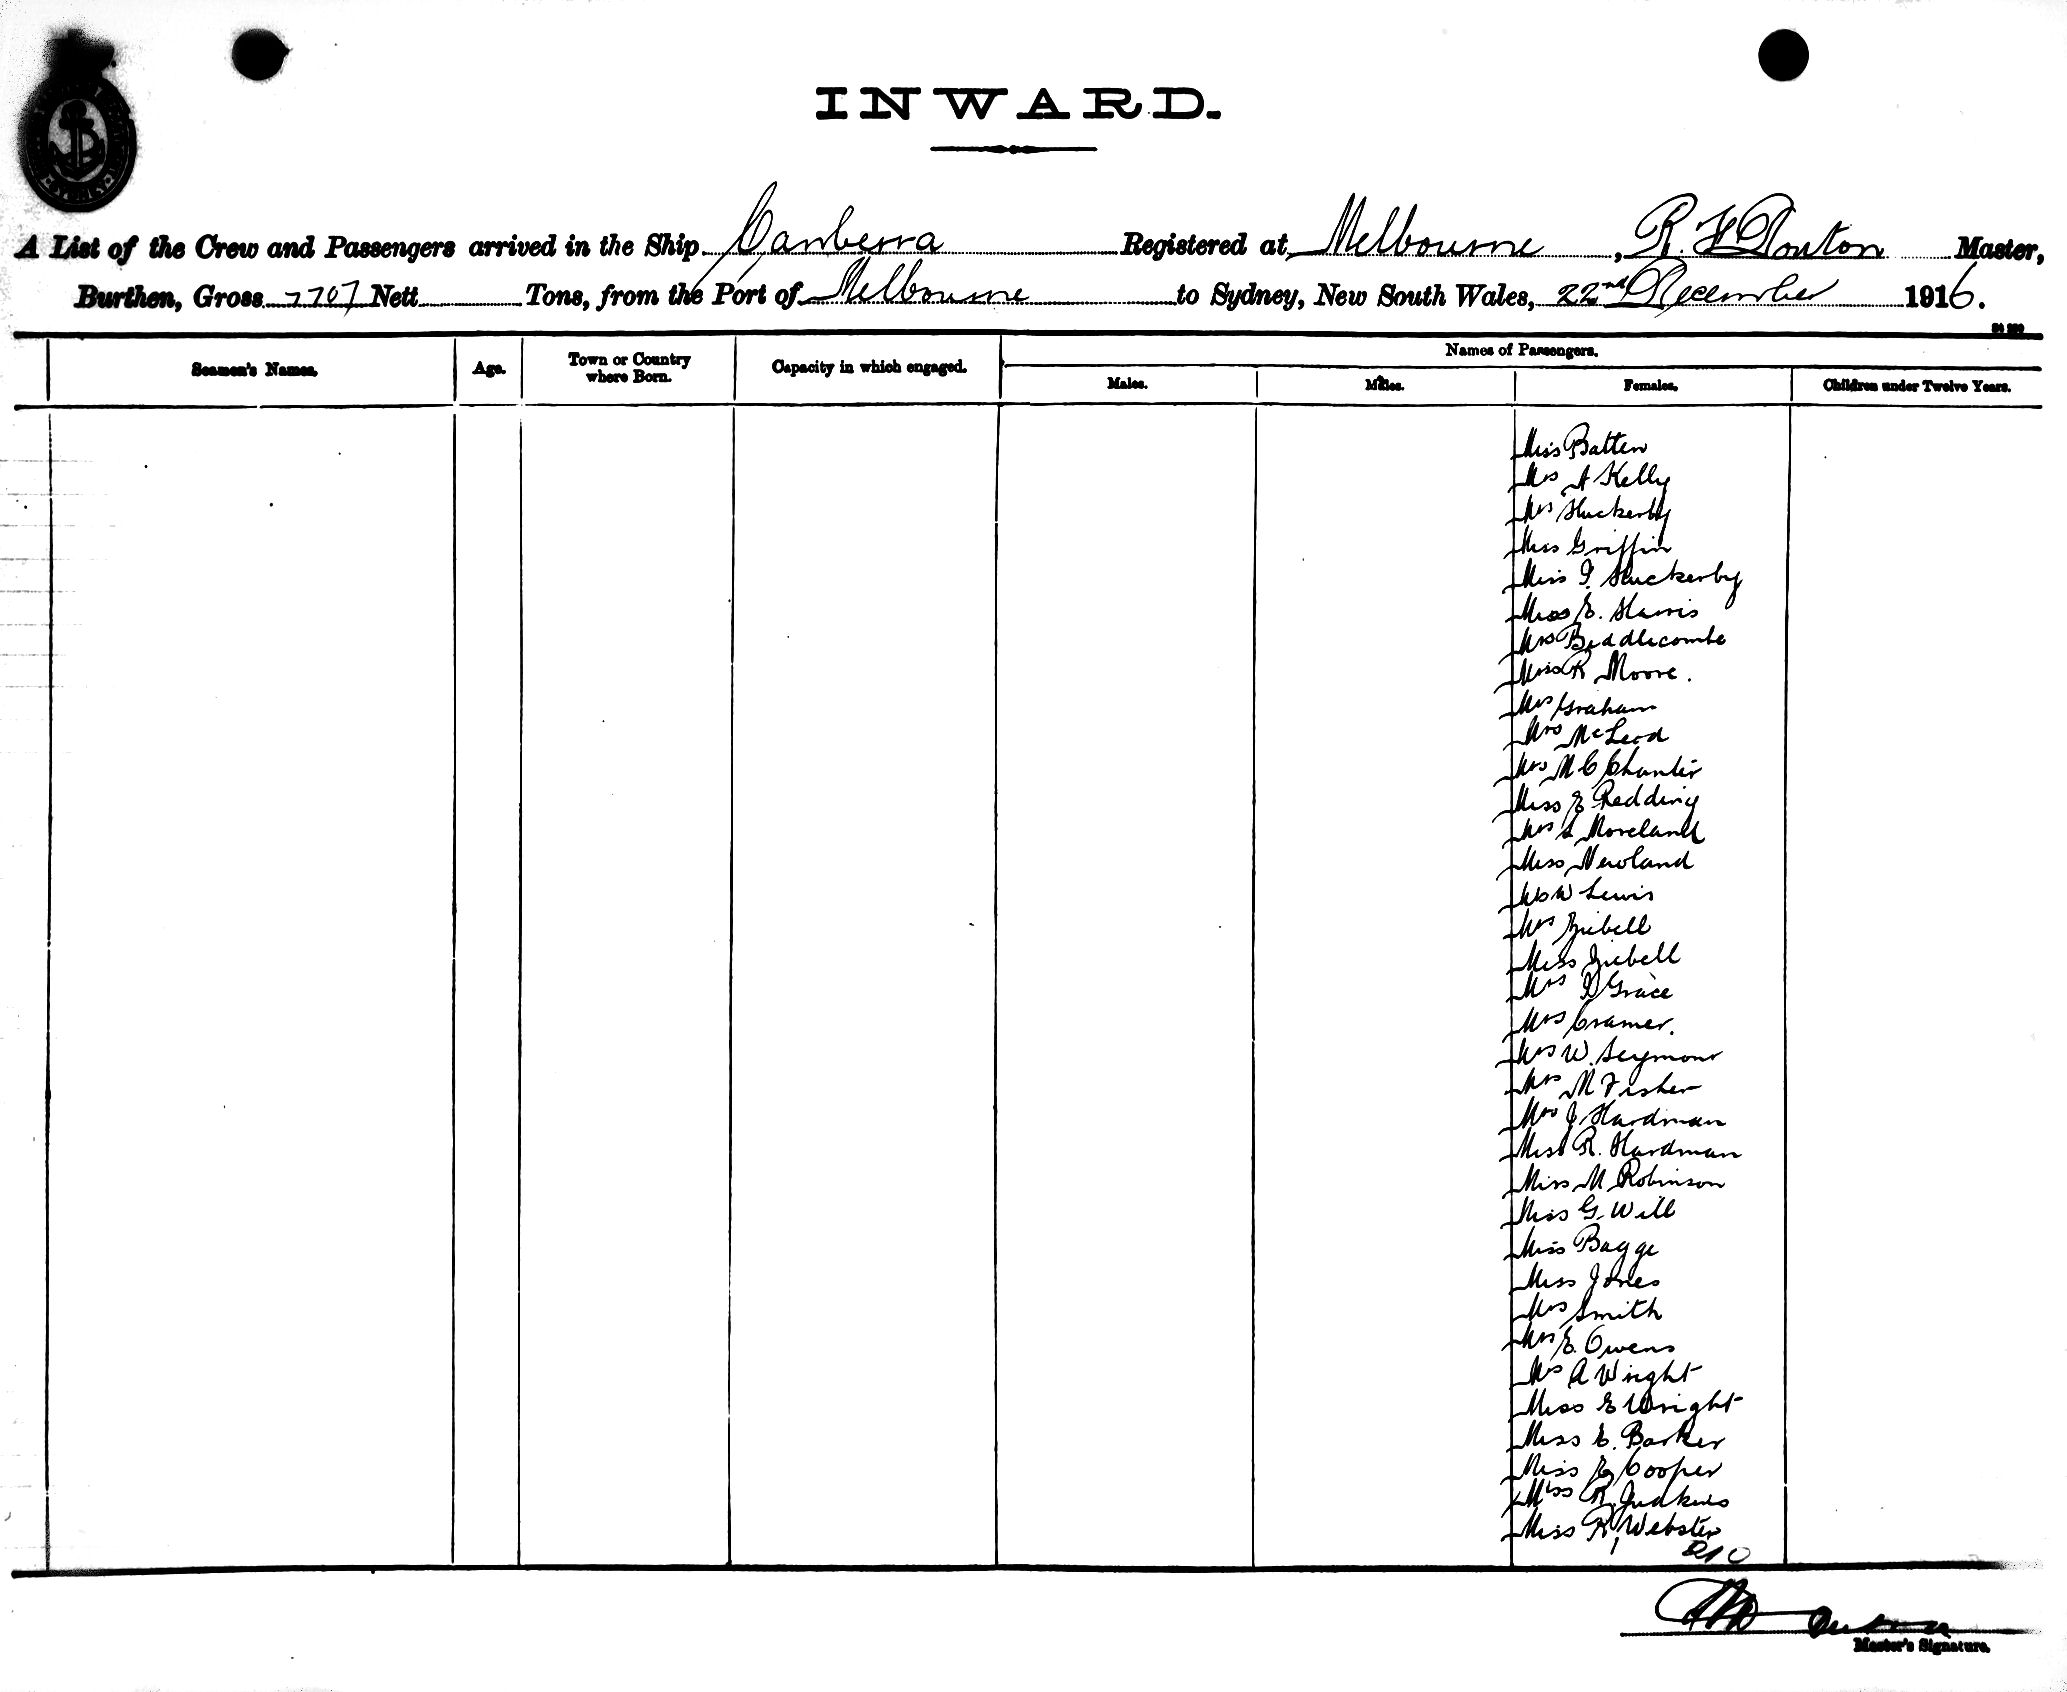 INWARD.
A List of the Crew and Passengers arrived in the Ship Canberra Registered at Melbourne, R. H Donton Master,
Burthen, Gross 7707 Nett Tons, from the Port of Melbourne to Sydney, New South Wales, 22nd December 1916.
Seamen's Names. Age. Town or Country where Born. Capacity in which engaged. Names of Passengers.
Males. Males. Females. Children under Twelve Years.
Miss Batten
Mrs A Kelly
Mrs Huckerby
Miss Griffin
Miss I. Huckerby
Miss E. Harris
Mrs Biddlecombe
Miss R Moore.
Mrs Graham
Mrs McLeod
Mrs M C Chanter
Miss E Redding
Mrs L Moreland
Miss Newland
Mrs W Lewis
Mrs Ziebell
Miss Ziebell
Mrs D Grace
Mrs Cramer.
Mrs W. Seymour
Mrs M Fisher
Mrs J Hardman
Miss R. Hardman
Miss M Robinson
Miss G. Will
Miss Bagge
Miss Jones
Mrs Smith
Mrs E. Owens
Mrs A Wright
Miss E Wright
Miss E. Barker
Miss E Cooper
Miss R. Judkins
Miss R Webster
Master's Signature.